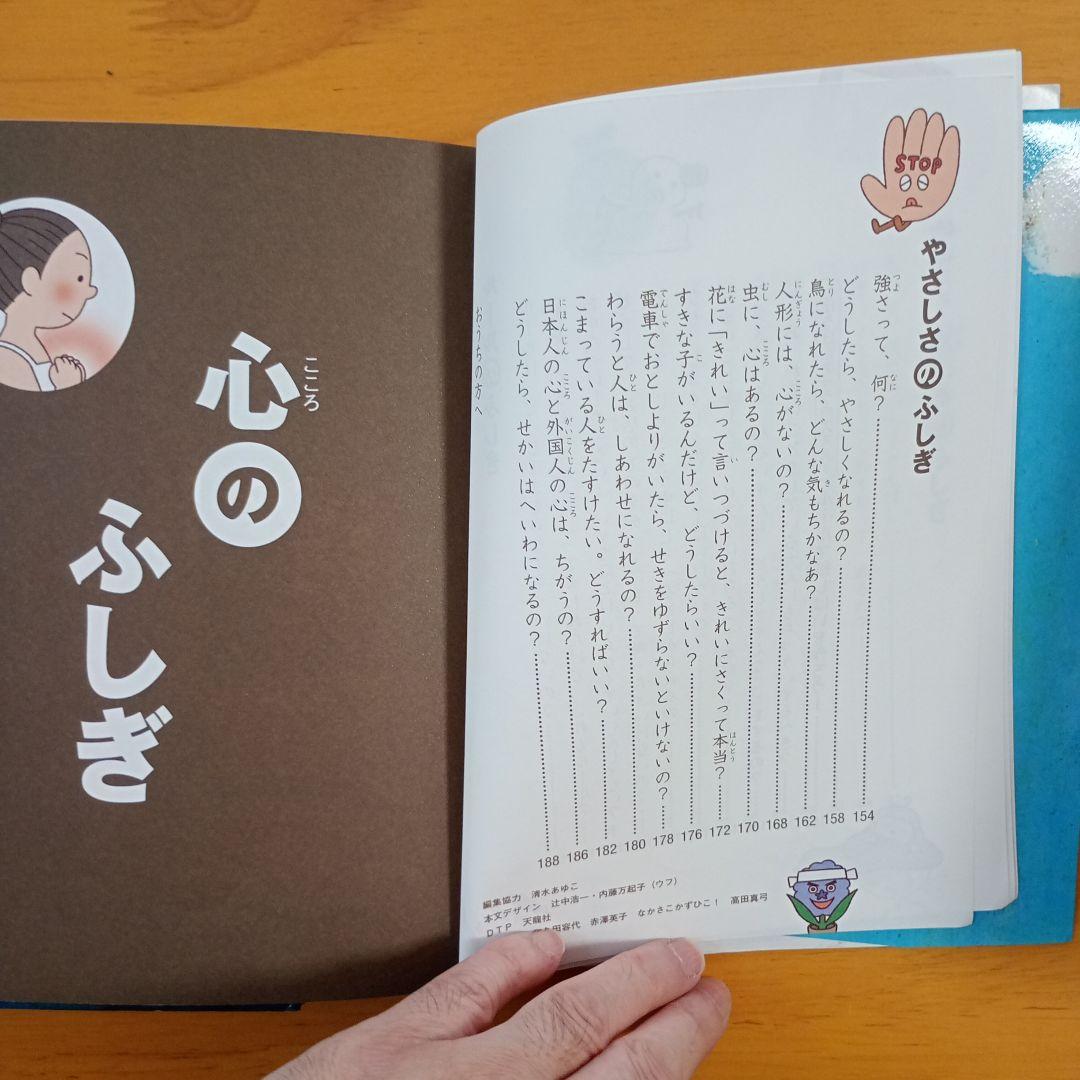 心の
こころ
ふしぎ
STOP
やさしさのふしぎ
つよ なに
強さって、何?……154
どうしたら、やさしくなれるの?……158
とり き
鳥になれたら、どんな気もちかなあ?……162
にんぎょう こころ
人形には、心がないの?……168
むし こころ
虫に、心はあるの?……170
はな い ほんとう
花に「きれい」って言いつづけると、きれいにさくって本当?……172
こ
すきな子がいるんだけど、どうしたらいい?……176
でんしゃ
電車でおとしよりがいたら、せきをゆずらないといけないの?……178
ひと
わらうと人は、しあわせになれるの?……180
ひと
こまっている人をたすけたい。どうすればいい?……182
にほんじん こころ がいこくじん こころ
日本人の心と外国人の心は、ちがうの?……186
どうしたら、せかいはへいわになるの?……188
おうちの方へ
編集協力 清水あゆこ
本文デザイン 辻中浩一・内藤万起子(ウフ)
DTP 天龍社
田容代 赤澤英子 なかさこかずひこ! 高田真弓